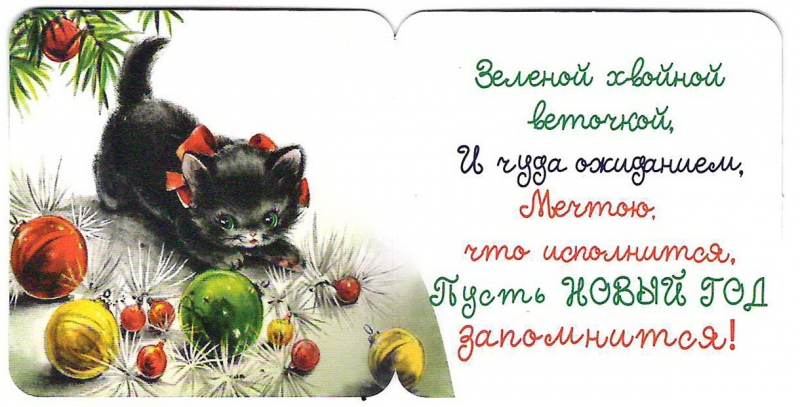 Зеленой хвойной
веточкой,
И чуда ожиданием,
Мечтою,
что исполнится,
Пусть НОВЫЙ ГОД
запомнится!